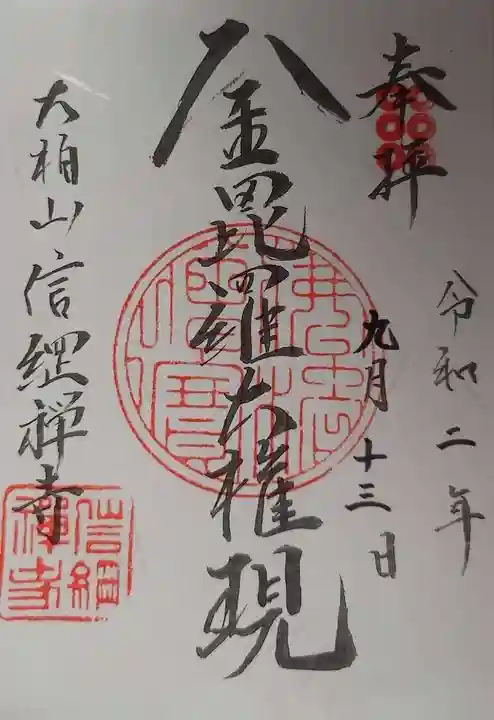 奉拝
令和二年
九月十三日
金毘羅大権現
大柏山信綱禅寺
信綱
禅寺